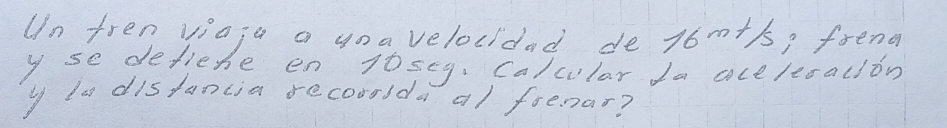 Un tren viaja a una velocidad de 16 mt/s; frena
y se detiene en 10 seg. Calcular la aceleración
y la distancia recorrida al frenar?